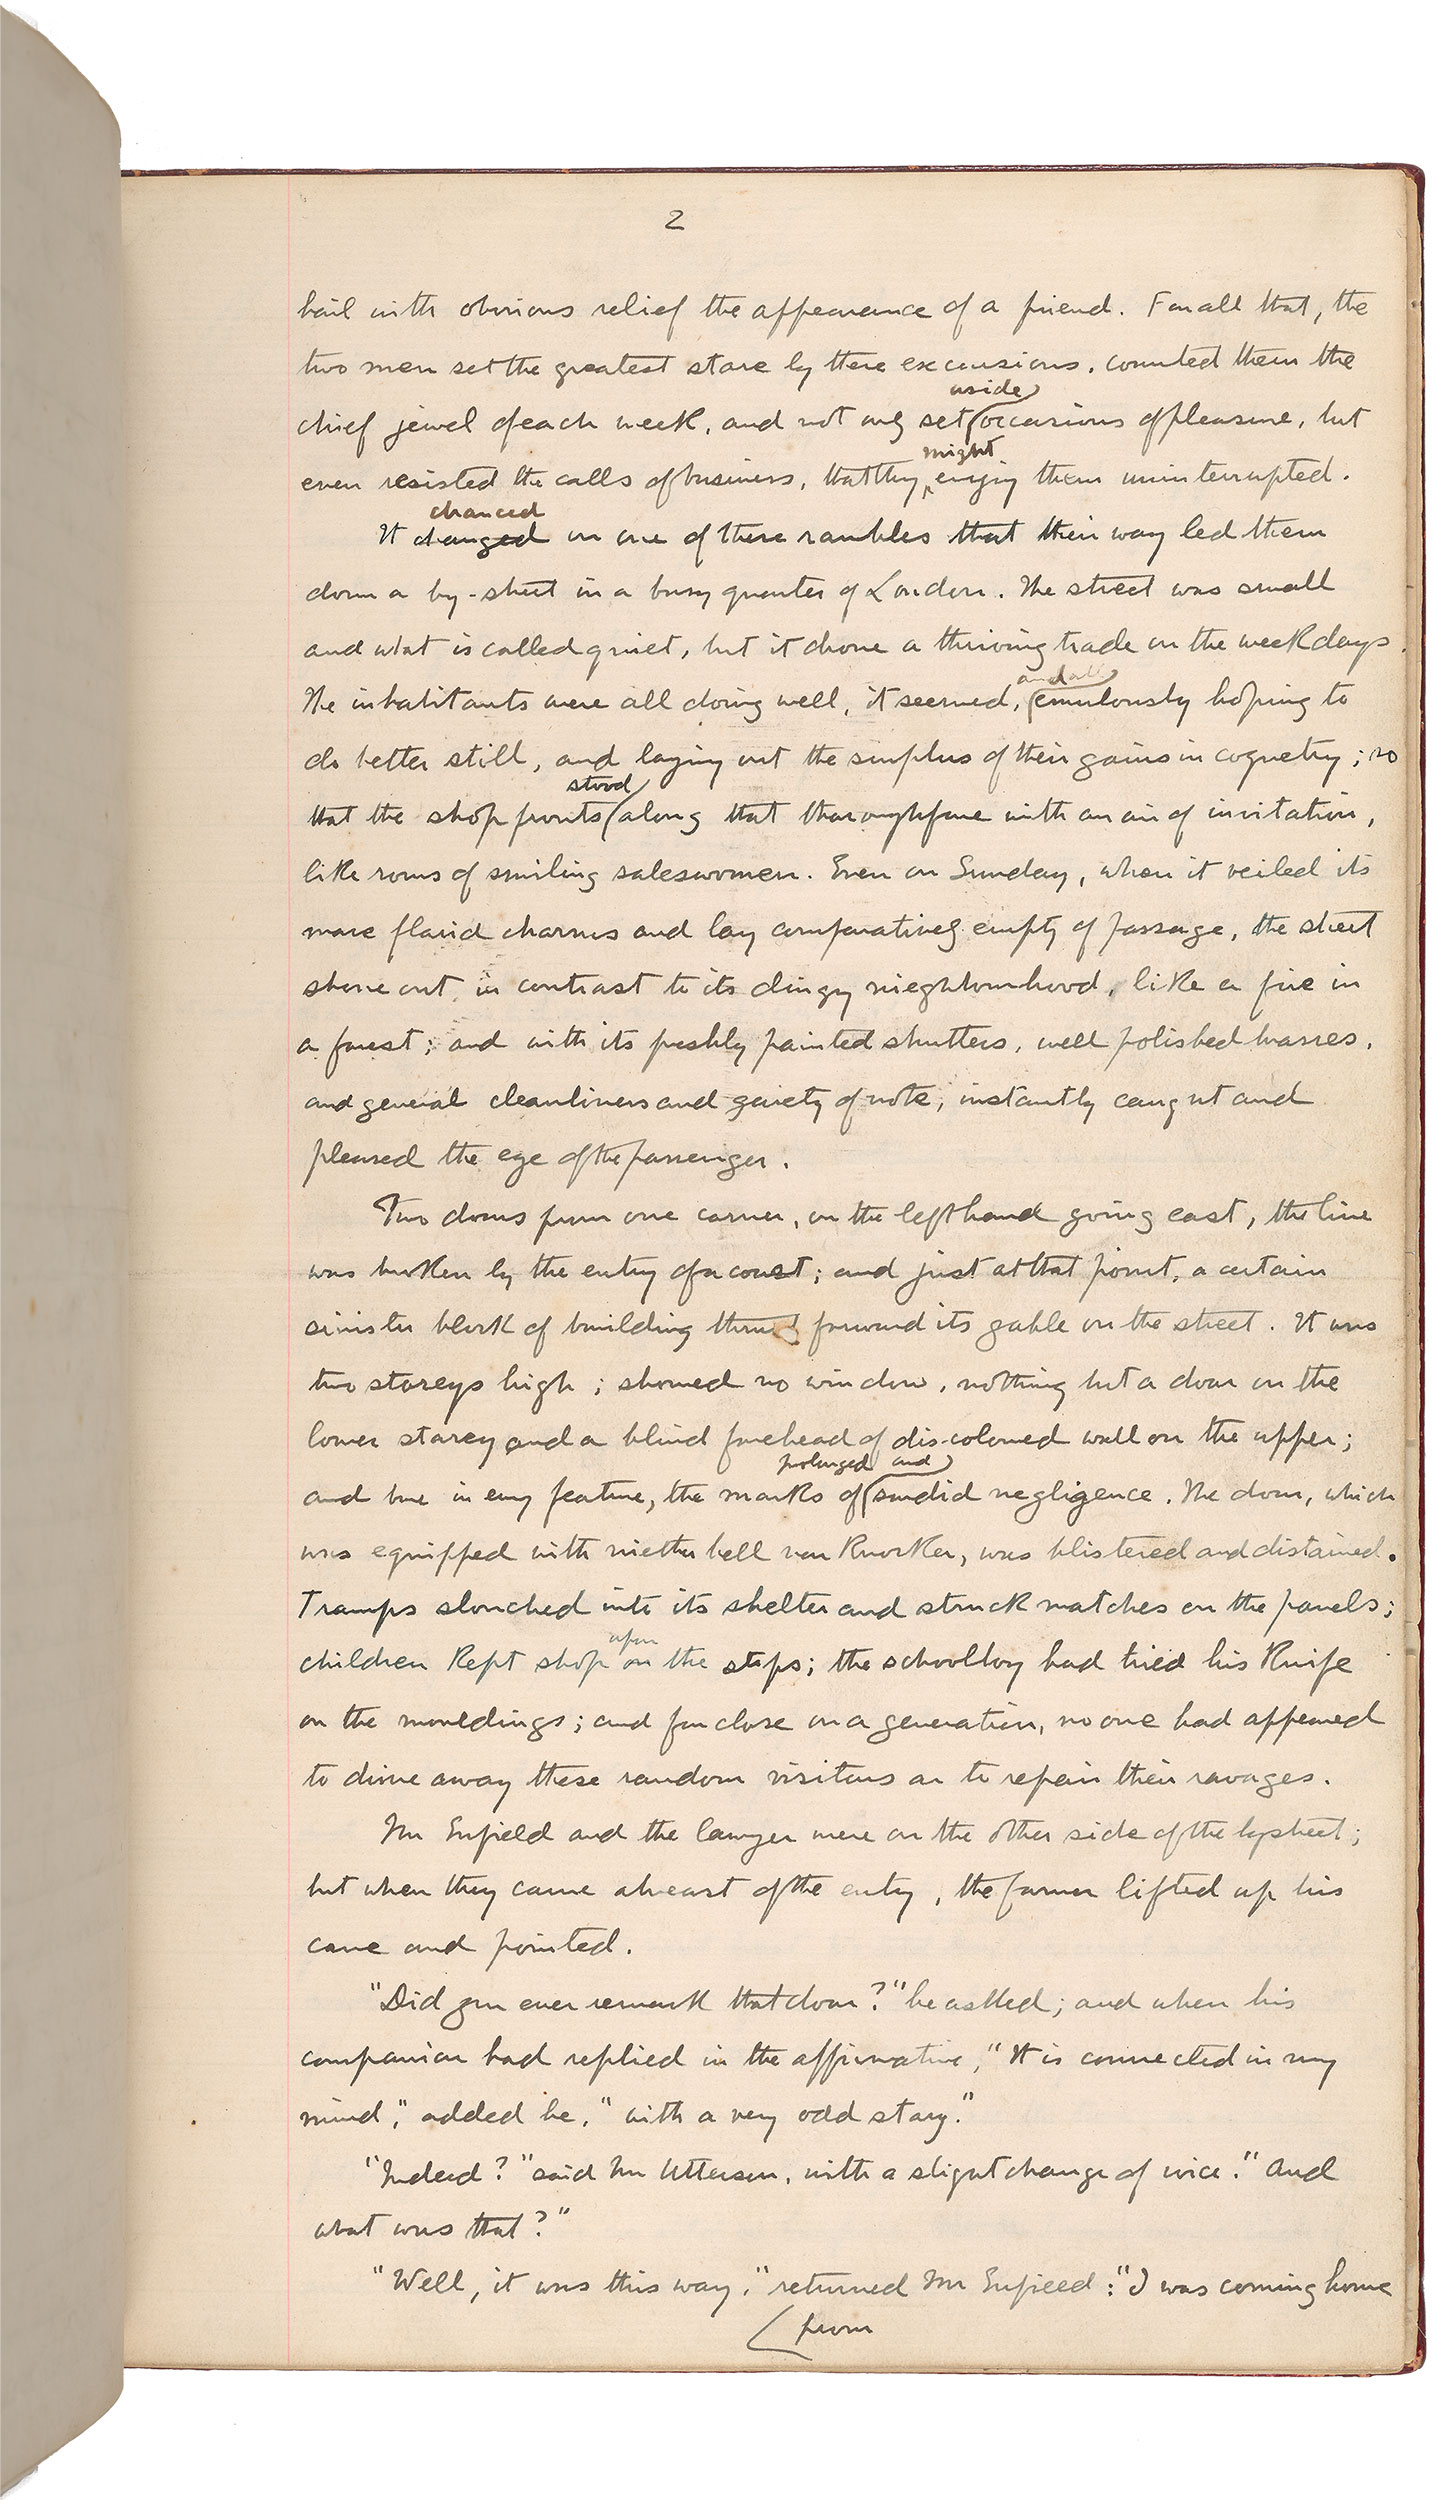 2
hail with obvious relief the appearance of a friend. For all that, the
two men set the greatest store by these excursions, counted them the
aside
chief jewel of each week, and not only set occasions of pleasure, but
might
even resisted the calls of business, that they enjoy them uninterrupted.
chanced
It changed on one of these rambles that their way led them
down a by-street in a busy quarter of London. The street was small
and what is called quiet, but it drove a thriving trade on the weekdays.
and all
The inhabitants were all doing well, it seemed, emulously hoping to
do better still, and laying out the surplus of their gains in coquetry; so
stood
that the shop fronts along that thoroughfare with an air of invitation,
like rows of smiling saleswomen. Even on Sunday, when it veiled its
more florid charms and lay comparatively empty of passage, the street
shone out in contrast to its dingy nieghbourhood, like a fire in
a forest; and with its freshly painted shutters, well polished brasses,
and general cleanliness and gaiety of note, instantly caught and
pleased the eye of the passenger.
Two doors from one corner, on the left hand going east, the line
was broken by the entry of a court; and just at that point, a certain
sinister block of building thrust forward its gable on the street. It was
two storeys high; showed no window, nothing but a door on the
lower storey and a blind forehead of discoloured wall on the upper;
prolonged and
and bore in every feature, the marks of sordid negligence. The door, which
was equipped with niether bell nor knocker, was blistered and distained.
Tramps slouched into its shelter and struck matches on the panels;
upon
children kept shop on the steps; the schoolboy had tried his knife
on the mouldings; and for close on a generation, no one had appeared
to drive away these random visitors or to repair their ravages.
Mr Enfield and the lawyer were on the other side of the bystreet;
but when they came abreast of the entry, the former lifted up his
cane and pointed.
"Did you ever remark that door?" he asked; and when his
companion had replied in the affirmative, "It is connected in my
mind," added he, "with a very odd story."
"Indeed?" said Mr Utterson, with a slight change of voice. "And
what was that?"
"Well, it was this way," returned Mr Enfield: "I was coming home
from